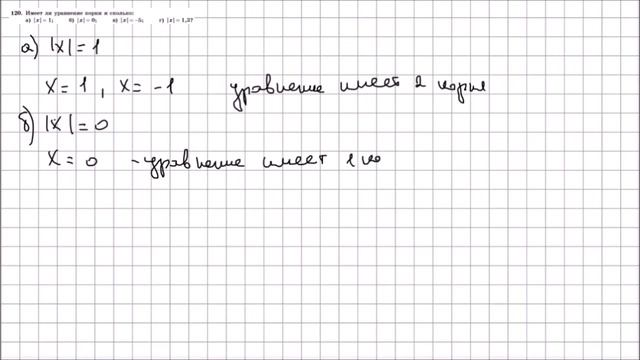 120. Имеет ли уравнение корни и сколько:
а) |x| = 1; б) |x| = 0; в) |x| = -5; г) |x| = 1,3?
а) |x| = 1
x = 1, x = -1 уравнение имеет 2 корня
б) |x| = 0
x = 0 - уравнение имеет 1 ко